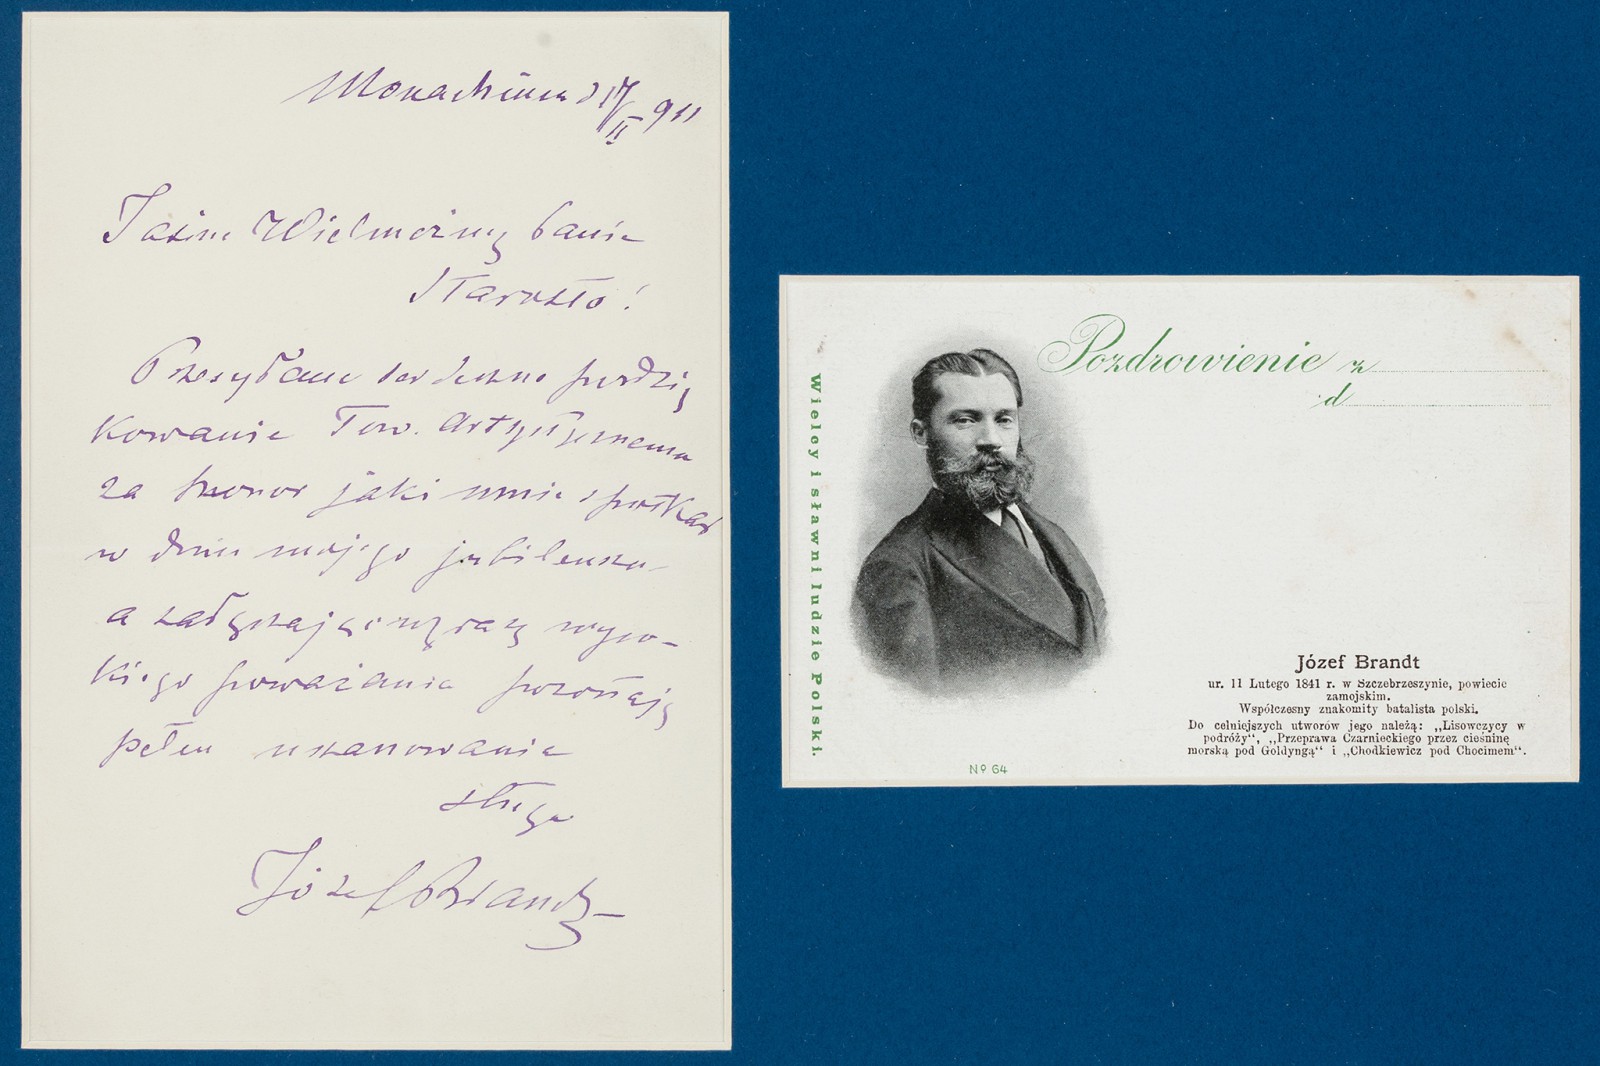 Monachium d 17/II 911
Jaśnie Wielmożny Panie
Starosto!
Przesyłam serdeczne podzię
kowanie Tow. Artystycznemu
za honor jaki mnie spotkał
w dniu mojego jubileuszu
a załączając wyrazy wyso-
kiego poważania pozostaję
pełen uszanowania
sługa
Józef Brandt
Wielcy i sławni ludzie Polski.
Pozdrowienie z
d
Józef Brandt
ur. 11 Lutego 1841 r. w Szczebrzeszynie, powiecie
zamojskim.
Współczesny znakomity batalista polski.
Do celniejszych utworów jego należą: „Lisowczycy w
podróży“, „Przeprawa Czarnieckiego przez cieśninę
morską pod Goldyngą“ i „Chodkiewicz pod Chocimem“.
No 64